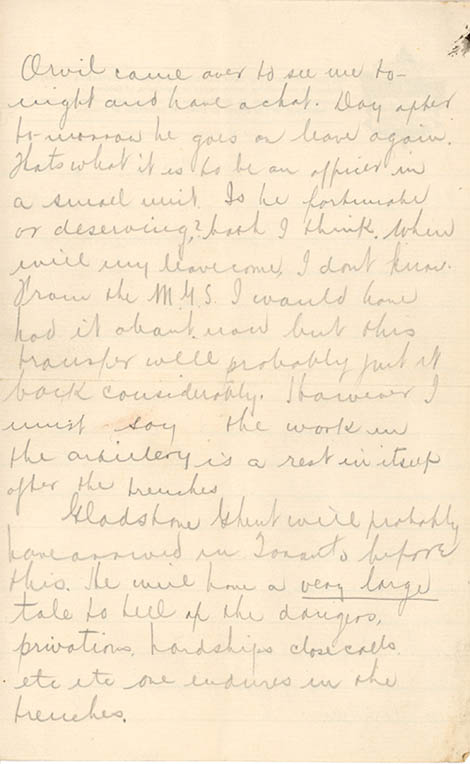 Orvil came over to see me to-
night and have a chat. Day after
to-morrow he goes on leave again.
Thats what it is to be an officer in
a small unit. Is he fortunate
or deserving? both I think. When
will my leave come, I dont know.
From the M.G.S. I would have
had it about now but this
transfer will probably put it
back considerably. However I
must say the work in
the artillery is a rest in itself
after the trenches
Gladstone Ghent will probably
have arrived in Toronto before
this. He will have a very large
tale to tell of the dangers,
privations, hardships close calls.
etc etc one endures in the
trenches.